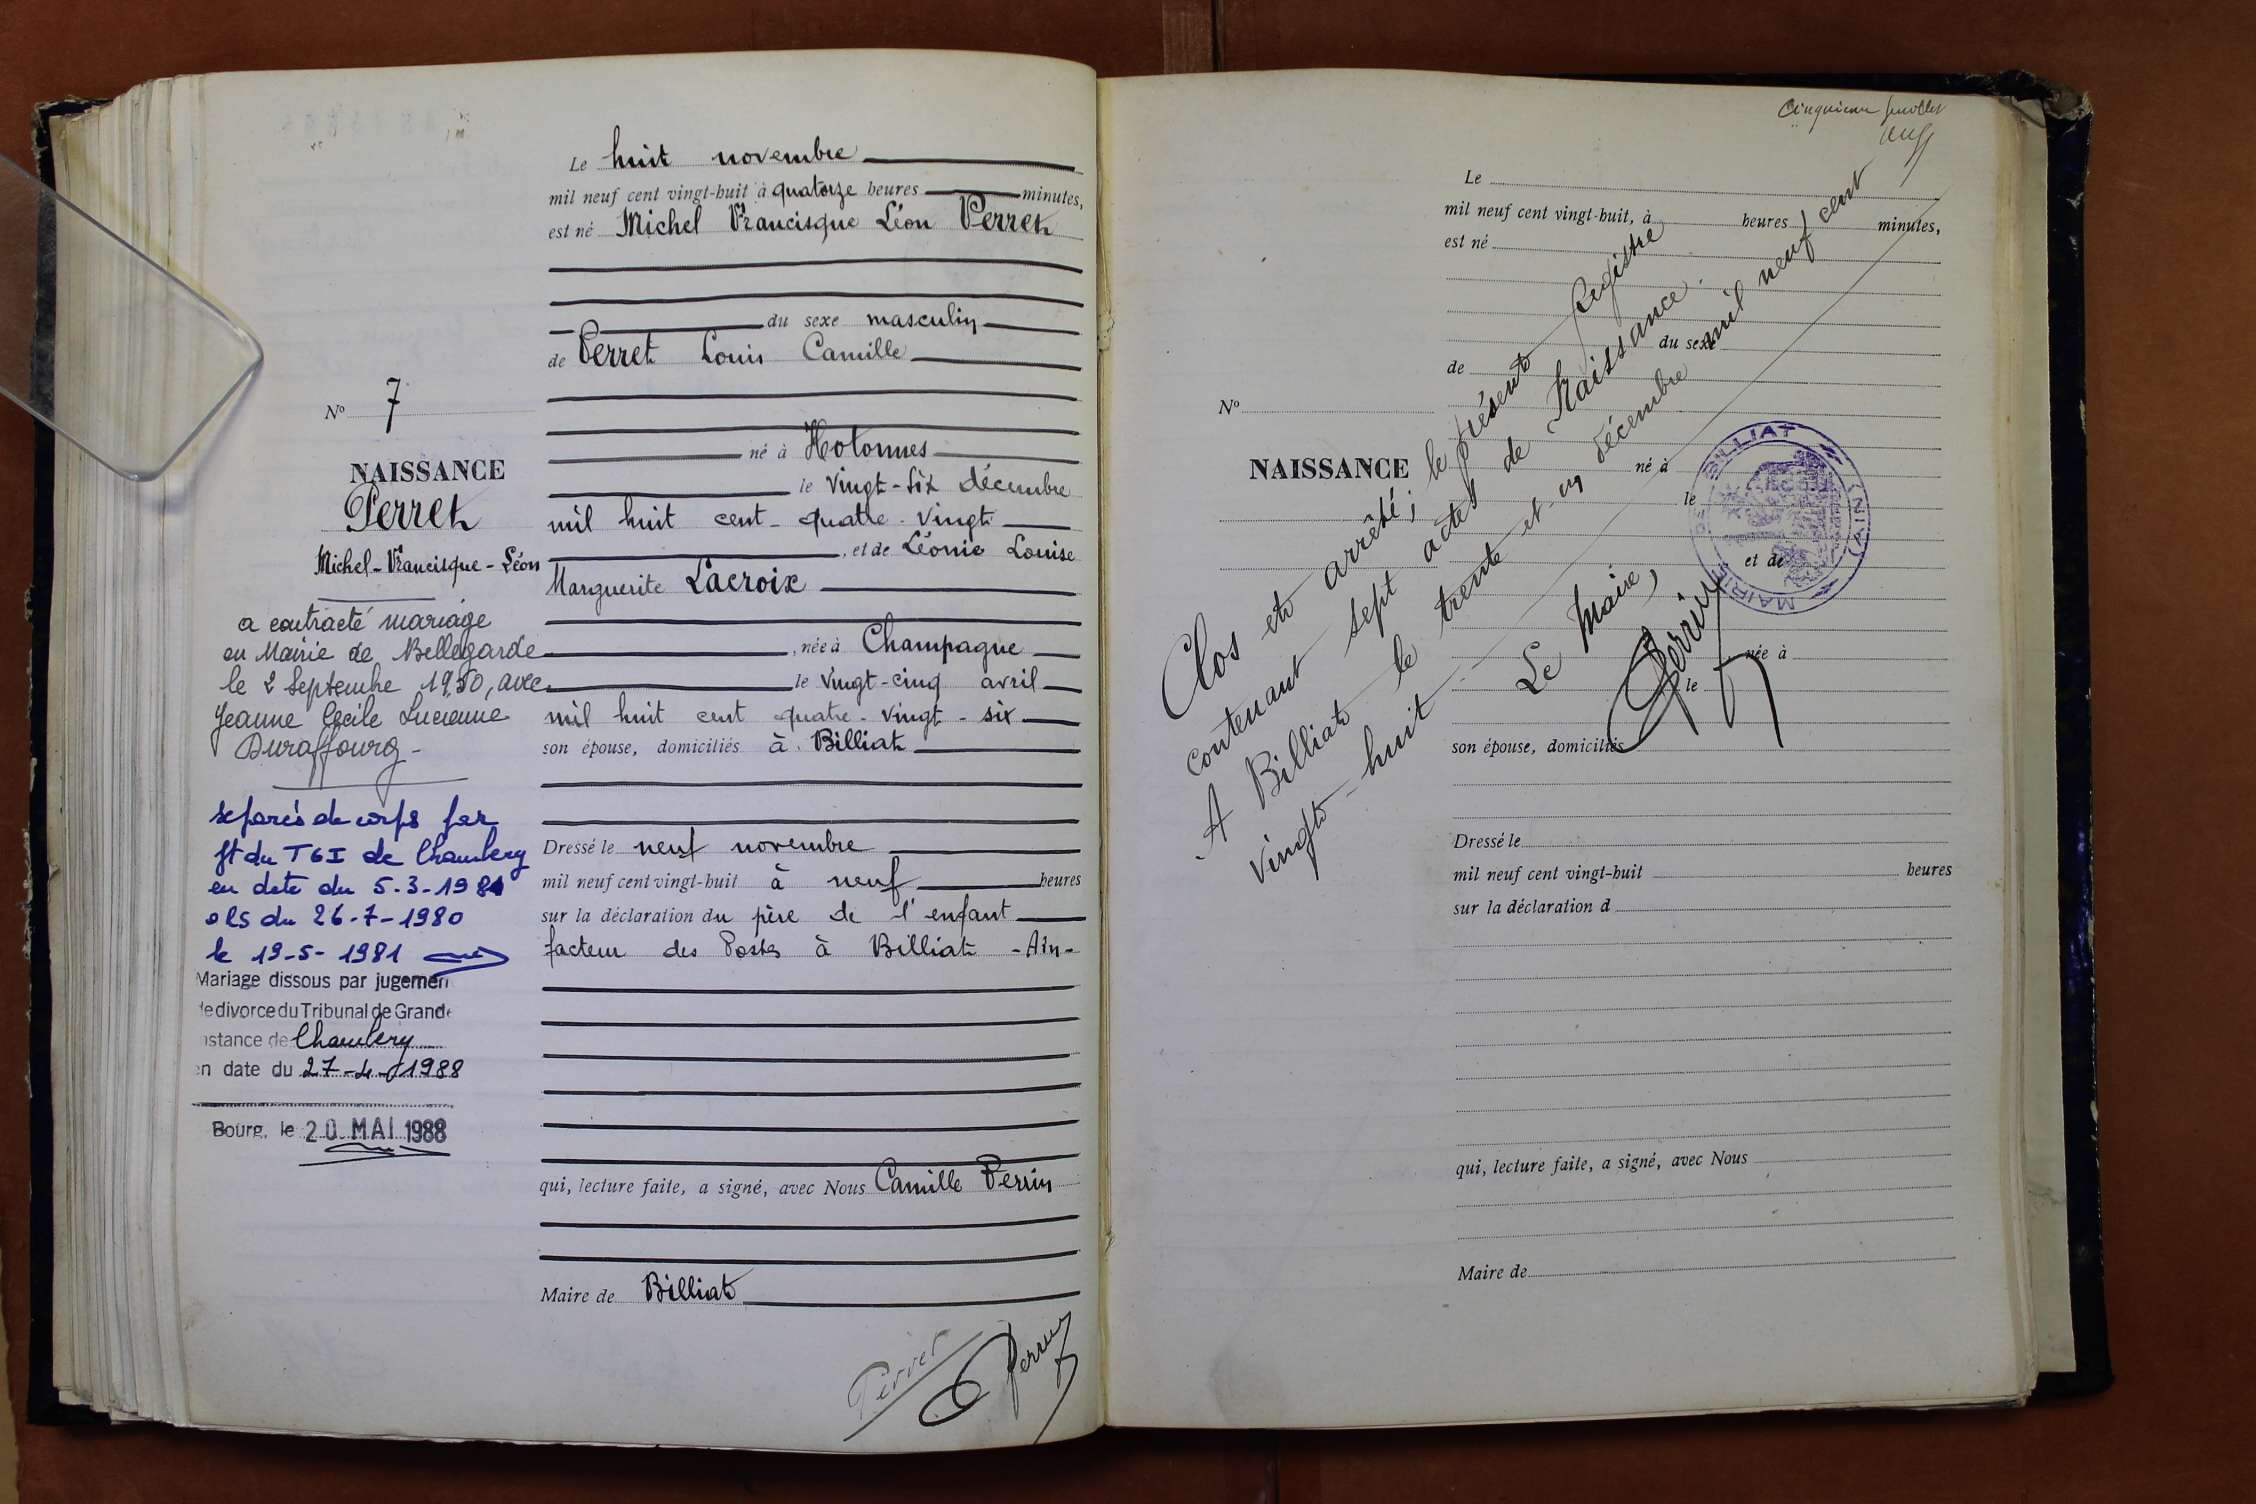 Le huit novembre
mil neuf cent vingt-huit à quatorze heures minutes,
est né Michel Francisque Léon Perret
du sexe masculin
de Perret Louis Camille
né à Hotonnes
le vingt-six décembre
mil huit cent quatre-vingt
, et de Léonie Louise
Marguerite Lacroix
, née à Champagne
le vingt-cinq avril
mil huit cent quatre-vingt-six
son épouse, domiciliés à Billiat
Dressé le neuf novembre
mil neuf cent vingt-huit à neuf heures
sur la déclaration du père de l'enfant
facteur des Postes à Billiat -Ain-
qui, lecture faite, a signé, avec Nous Camille Perrin
Maire de Billiat
Perret
Perrin
No 7
NAISSANCE
Perret
Michel-Francisque-Léon
a contracté mariage
en Mairie de Bellegarde
le 2 Septembre 1950, avec
Jeanne Cécile Lucienne
Duraffourg -
séparés de corps par
jt du TGI de Chambery
en date du 5-3-1981
du 26-7-1980
le 19-5-1981
Mariage dissous par jugemen
de divorce du Tribunal de Grande
nstance de Chambery
en date du 27-4-1988
Bourg, le 20 MAI 1988
Cinquième feuillet
Le
mil neuf cent vingt-huit, à heures minutes,
est né
du sexe
de
No
NAISSANCE
né à
le
et de
née à
le
son épouse, domiciliés
Dressé le
mil neuf cent vingt-huit heures
sur la déclaration d
qui, lecture faite, a signé, avec Nous
Maire de
Clos et arrêté; le présent Registre
contenant sept actes de Naissance.
A Billiat le trente-et-un décembre mil neuf cent
vingt-huit
Le Maire,
Perrin
MAIRIE DE BILLIAT (AIN)